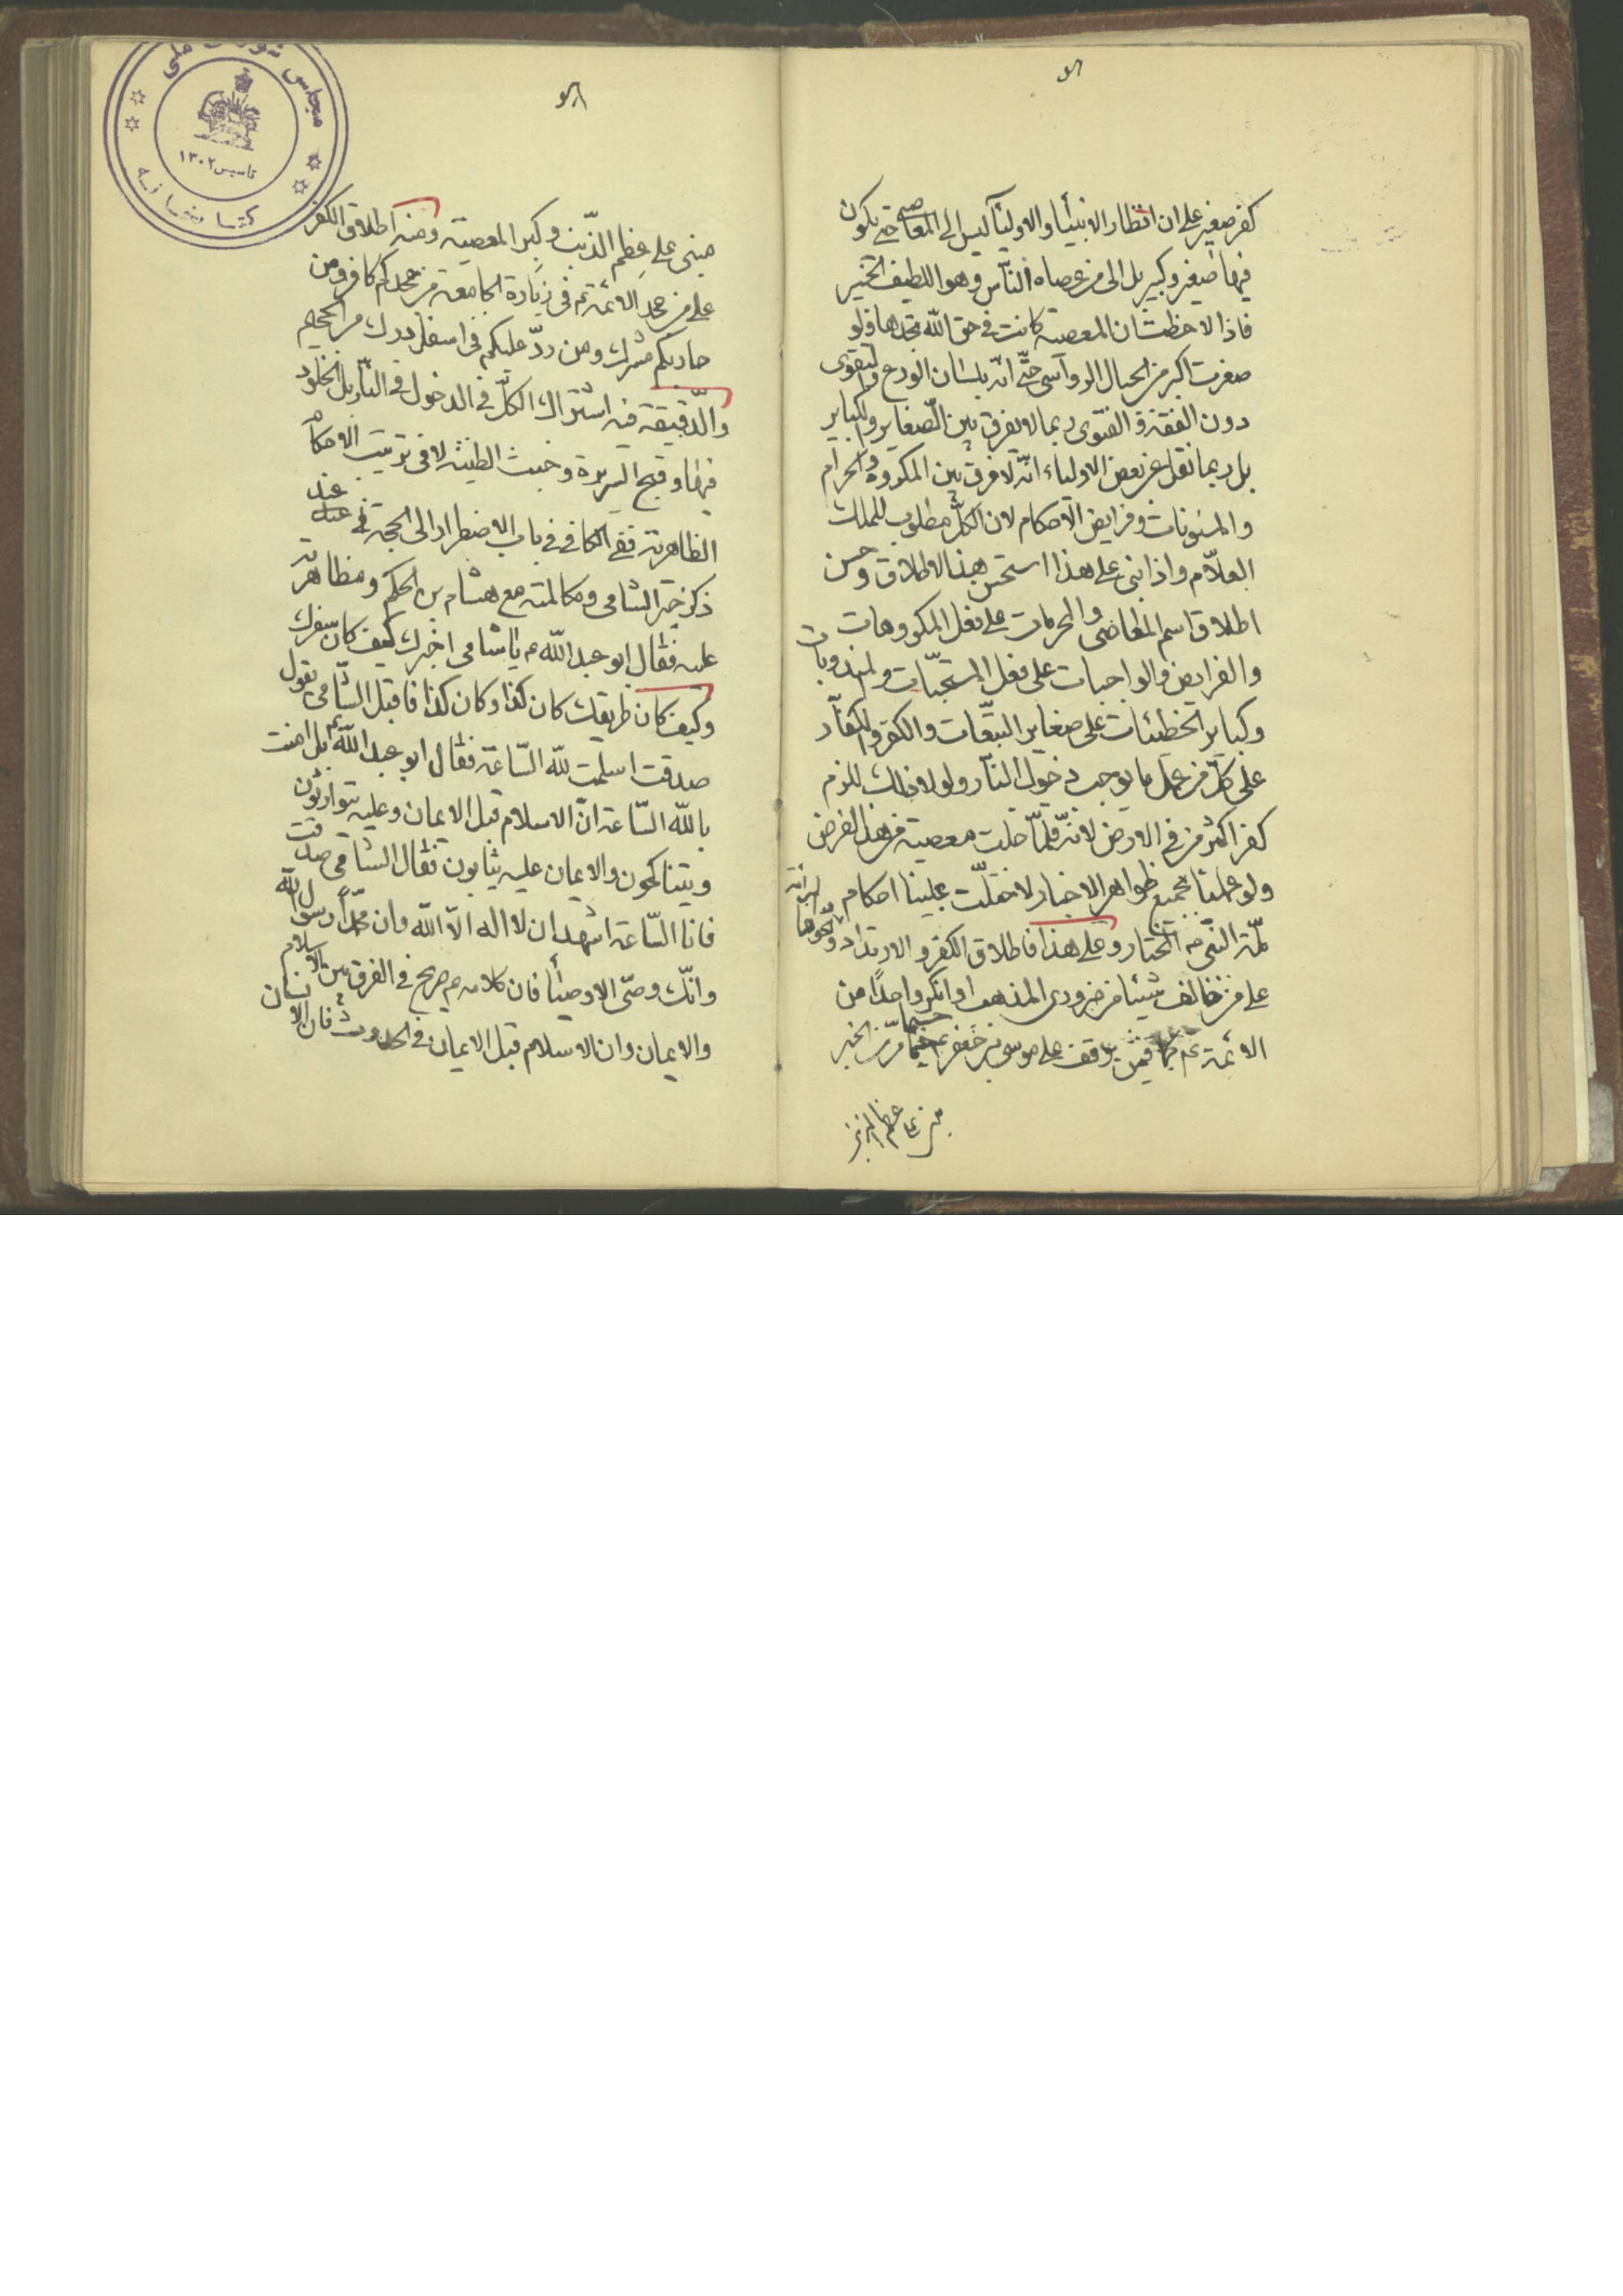 كفر صغير على ان انظار الانبياء والاولياء ليس الى المعاصي حتى يكون
فيها صغير وكبير بل الى من عصاه الناس وهو اللطيف الخبير
فاذا لاحظت ان المعصية كانت في حق الله تجدها ولو
صغرت اكبر من الجبال الرواسي حتى انه بلسان الورع والتقوى
دون الفقه والفتوى ربما لا يفرق بين الصغاير والكباير
بل ربما نقل عن بعض الاولياء انه لا فرق بين المكروه والحرام
والمسنونات وفرايض الاحكام لان الكل مطلوب للملك
العلام واذا بنى على هذا استحسن هذا الاطلاق وحسن
اطلاق اسم المعاصي والمحرمات على فعل المكروهات
والفرايض والواجبات على فعل المستحبات والمندوبات
وكباير الخطيئات على صغاير التبعات والكفر والكفار
على كل من عمل ما يوجب دخول النار ولولا ذلك للزم
كفر اكثر من في الارض لانه قلما خلت معصية من هذا الفرض
ولو عملنا بجميع ظواهر الاخبار لاختلت علينا احكام
ملة النبي المختار وعلى هذا فاطلاق الكفر والارتداد ونحوها
على من خالف شيئا من ضروري المذهب او انكر واحدا من
الائمة عم فيمن يوقف على موسى بن جعفر عم حيثما مر الخبر
مبنى على عظم الذنب
٥٨
مجلس شورای ملی
تاسیس ١٣٠٢
کتابخانه
مبنى على عظم الذنب وكبر المعصية ومنه اطلاق الكفر
على من جحد الائمة عم في زيارة الجامعة من جحدكم كافر ومن
حاربكم مشرك ومن رد عليكم في اسفل درك من الجحيم
والدقيقة فيه اشتراك الكل في الدخول في النار بل الخلود
فيها وقبح السريرة وخبث الطينة لا في ترتيب الاحكام
الظاهرية ففي الكافي في باب الاضطرار الى الحجة في عند
ذكر خبر الشامي ومكالمته مع هشام بن الحكم ومظاهرته
عليه فقال ابو عبد الله ع يا شامي اخبرك كيف كان سفرك
وكيف كان طريقك كان كذا وكان كذا فاقبل الشامي يقول
صدقت اسلمت لله الساعة فقال ابو عبد الله عم بل امنت
بالله الساعة ان الاسلام قبل الايمان وعليه يتوارثون
ويتناكحون والايمان عليه يثابون فقال الشامي صدقت
فانا الساعة اشهد ان لا اله الا الله وان محمدا رسول الله
وانك وصي الاوصياء فان كلامه ع صريح في الفرق بين الاسلام
والايمان وان الاسلام قبل الايمان في الحدوث فان الانسان